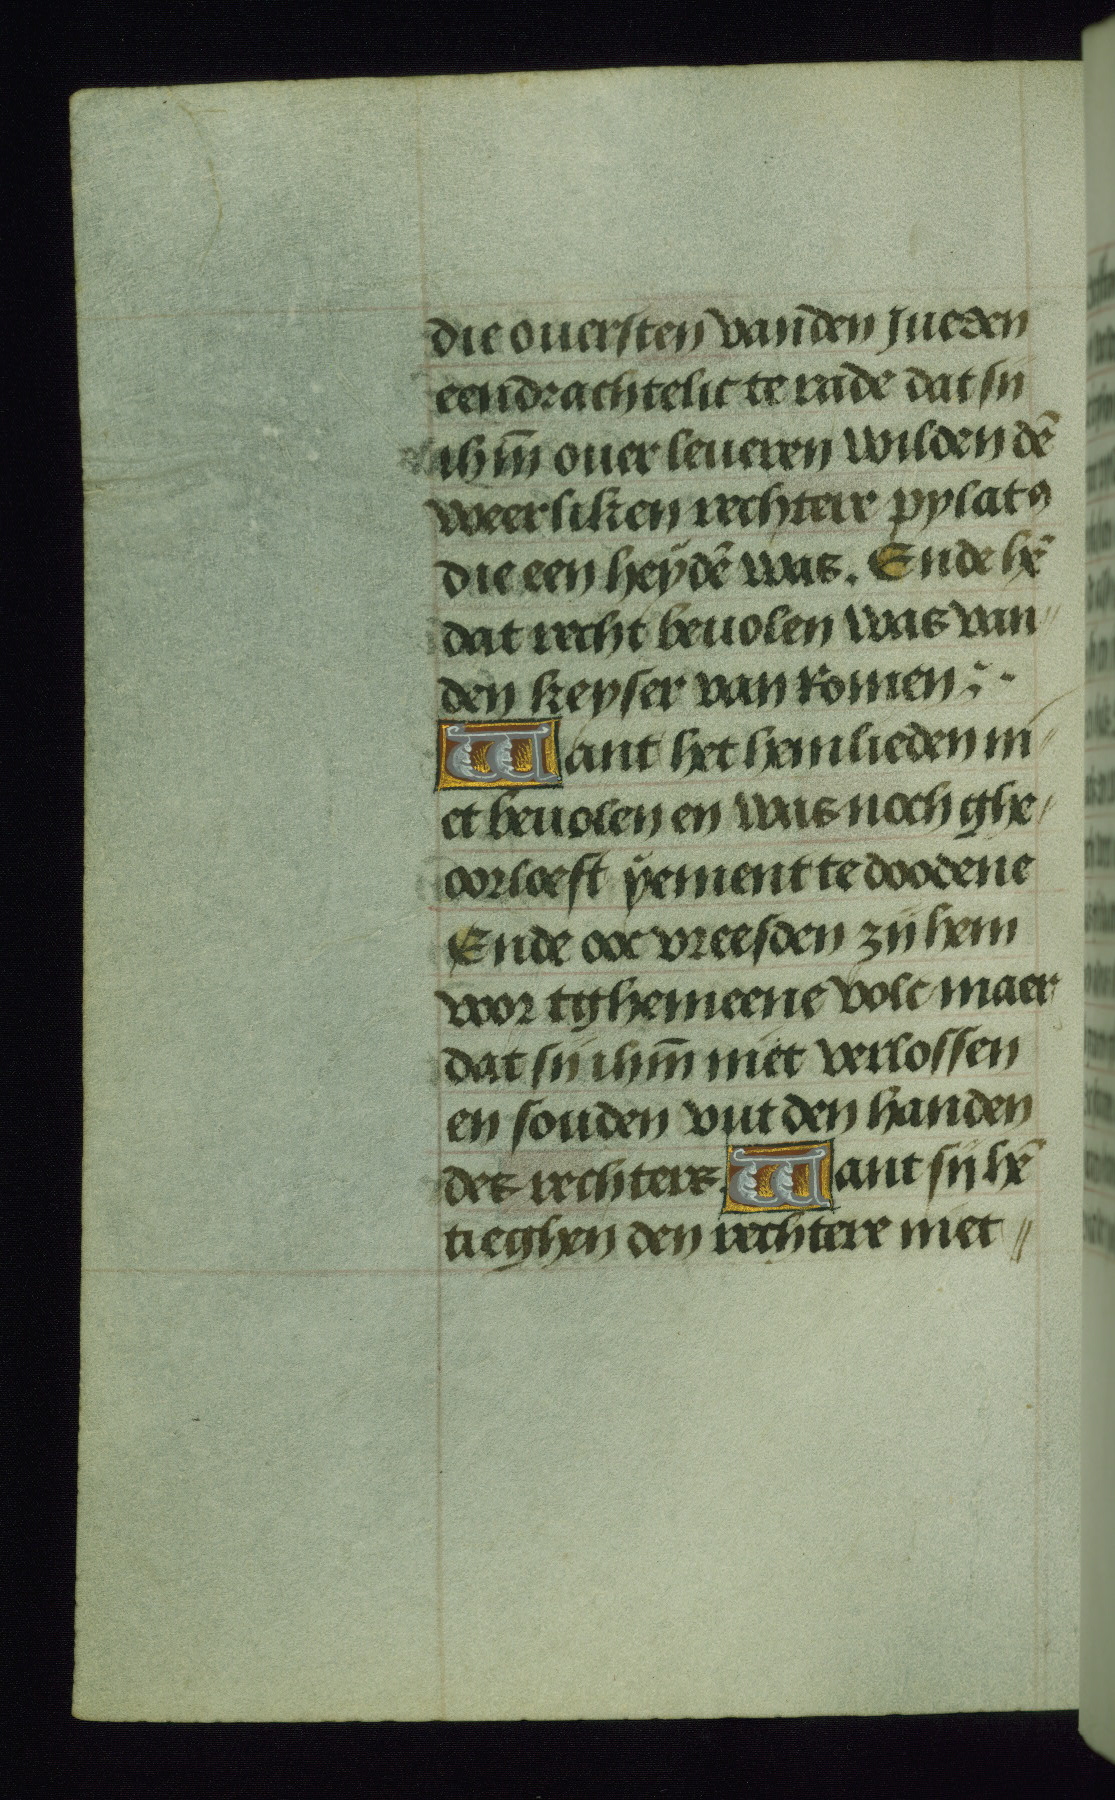 die ouersten vanden Jueden
eendrachtelic te rade dat sij
ihm̄ ouerleueren wilden dē
weerliken rechtere pylatꝰ
die een heydē was. Ende hē
dat recht beuolen was van
den keyser van Romen
Want het hemlieden ni
et beuolen en was noch ghe
oorloeft yement te doodene
Ende ooc vreesden zij hem
voor tghemeene volc maer
dat sij ihm̄ niet verlossen
en souden vut den handen
des rechters. Want sij hē
tieghen den rechtere niet